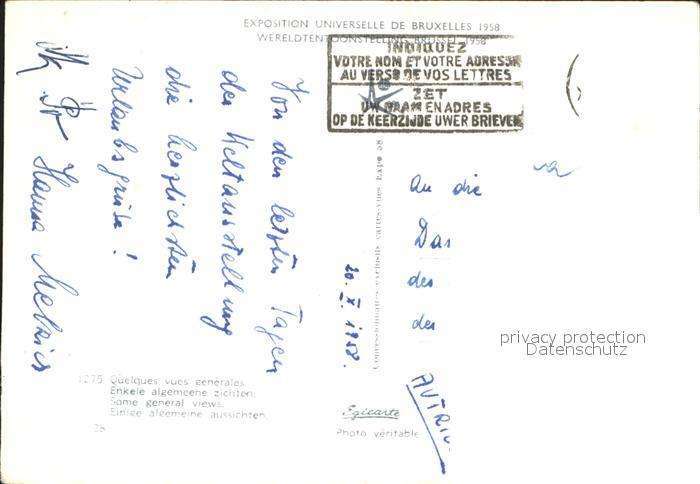 EXPOSITION UNIVERSELLE DE BRUXELLES 1958
WERELDTENTOONSTELLING BRUSSEL 1958
INDIQUEZ
VOTRE NOM ET VOTRE ADRESSE
AU VERSO DE VOS LETTRES
ZET
UW NAAM EN ADRES
OP DE KEERZIJDE UWER BRIEVEN
Von den letzten Tagen
der Weltausstellung
die herzlichsten
Urlaubsgrüße!
Hanna
20. X. 1958.
An die
Das
des
des
privacy protection
Datenschutz
AUTRIC
1275 Quelques vues générales.
Enkele algemeene zichten.
Some general views.
Einige algemeine aussichten.
Egicarte
Photo véritable